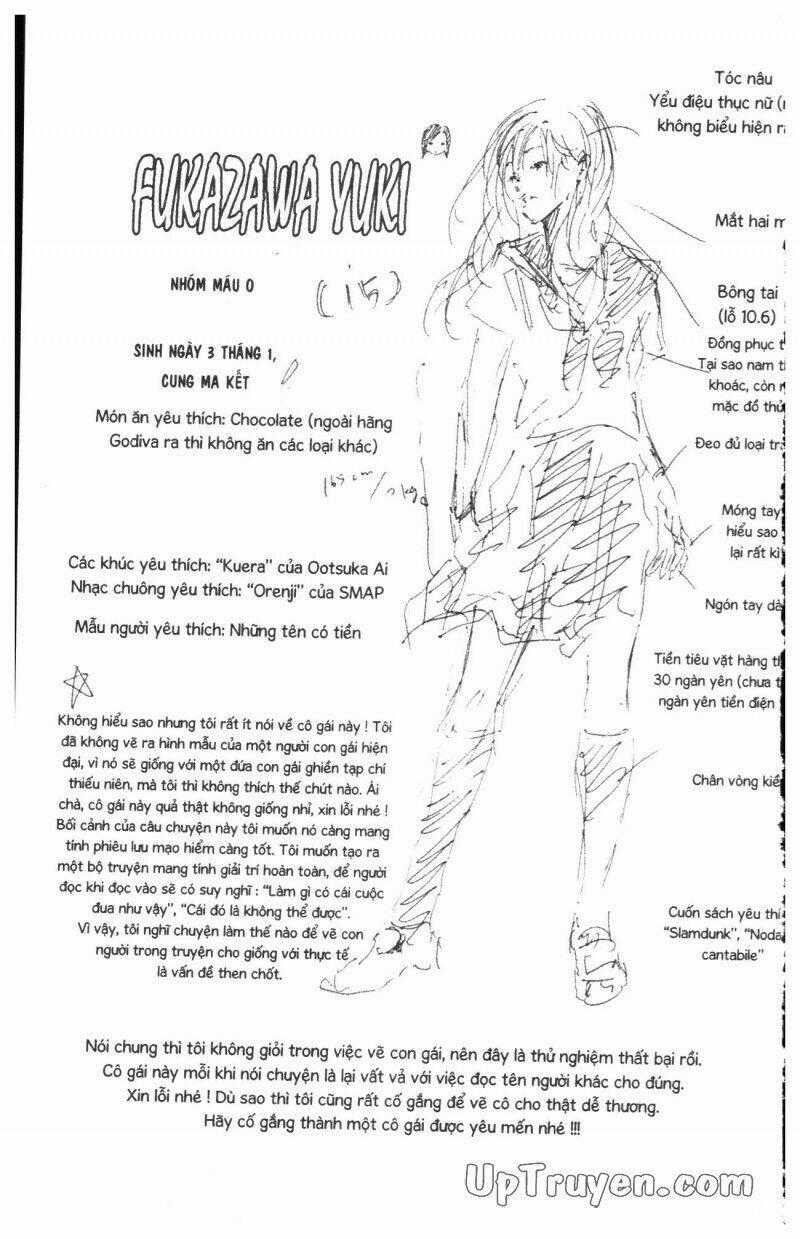 FUKAZAWA YUKI
NHÓM MÁU O
(15)
SINH NGÀY 3 THÁNG 1,
CUNG MA KẾT
Món ăn yêu thích: Chocolate (ngoài hãng
Godiva ra thì không ăn các loại khác)
165 cm/
Các khúc yêu thích: "Kuera" của Ootsuka Ai
Nhạc chuông yêu thích: "Orenji" của SMAP
Mẫu người yêu thích: Những tên có tiền
Không hiểu sao nhưng tôi rất ít nói về cô gái này ! Tôi
đã không vẽ ra hình mẫu của một người con gái hiện
đại, vì nó sẽ giống với một đứa con gái ghiền tạp chí
thiếu niên, mà tôi thì không thích thế chút nào. Ái
chà, cô gái này quả thật không giống nhỉ, xin lỗi nhé !
Bối cảnh của câu chuyện này tôi muốn nó càng mang
tính phiêu lưu mạo hiểm càng tốt. Tôi muốn tạo ra
một bộ truyện mang tính giải trí hoàn toàn, để người
đọc khi đọc vào sẽ có suy nghĩ : "Làm gì có cái cuộc
đua như vậy", "Cái đó là không thể được".
Vì vậy, tôi nghĩ chuyện làm thế nào để vẽ con
người trong truyện cho giống với thực tế
là vấn đề then chốt.
Tóc nâu
Yểu điệu thục nữ (
không biểu hiện
Mắt hai
Bông tai
(lỗ 10.6)
Đồng phục
Tại sao nam
khoác, còn
mặc đồ
Đeo đủ loại
Móng tay
hiểu sao
lại rất
Ngón tay
Tiền tiêu vặt hàng
30 ngàn yên (chưa
ngàn yên tiền điện
Chân vòng
Cuốn sách yêu
"Slamdunk", "Noda
cantabile"
Nói chung thì tôi không giỏi trong việc vẽ con gái, nên đây là thử nghiệm thất bại rồi.
Cô gái này mỗi khi nói chuyện là lại vất vả với việc đọc tên người khác cho đúng.
Xin lỗi nhé ! Dù sao thì tôi cũng rất cố gắng để vẽ cô cho thật dễ thương.
Hãy cố gắng thành một cô gái được yêu mến nhé !!!
UpTruyen.com